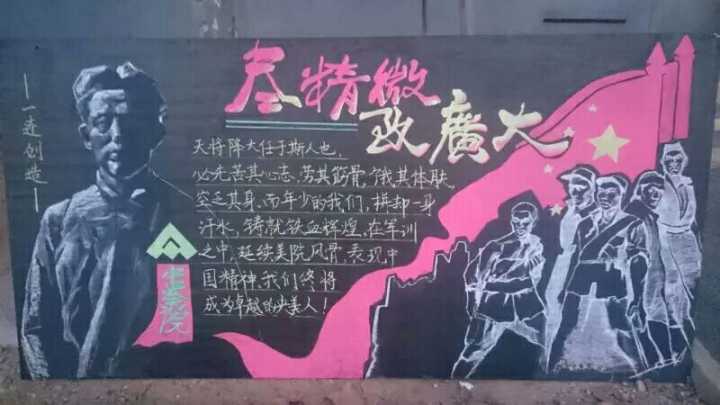 尽精微
致廣大
一连创造
天将降大任于斯人也,
必先苦其心志,劳其筋骨,饿其体肤,
空乏其身,而年少的我们,拼却一身
汗水,铸就铁血辉煌,在军训
之中,延续美院风骨,表现中
国精神,我们终将
成为卓越的央美人!
中央美院